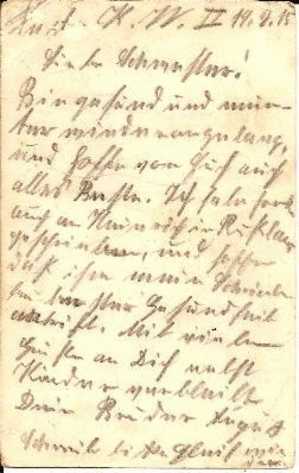 K. W. II 19.2.15
Liebe Schwester!
Bin gesund und mun-
ter wieder angelang,
und hoffe von Euch auch
alles Beste. Ich habe
auch an Heinrich in Rußland
geschrieben, und hoffe
daß ihn mein Schreiben
bei bester Gesundheit
antrifft. Mit vielen
Grüßen an Dich nebst
Kinder verbleibt
Dein Bruder August
Schreib bitte gleich wieder